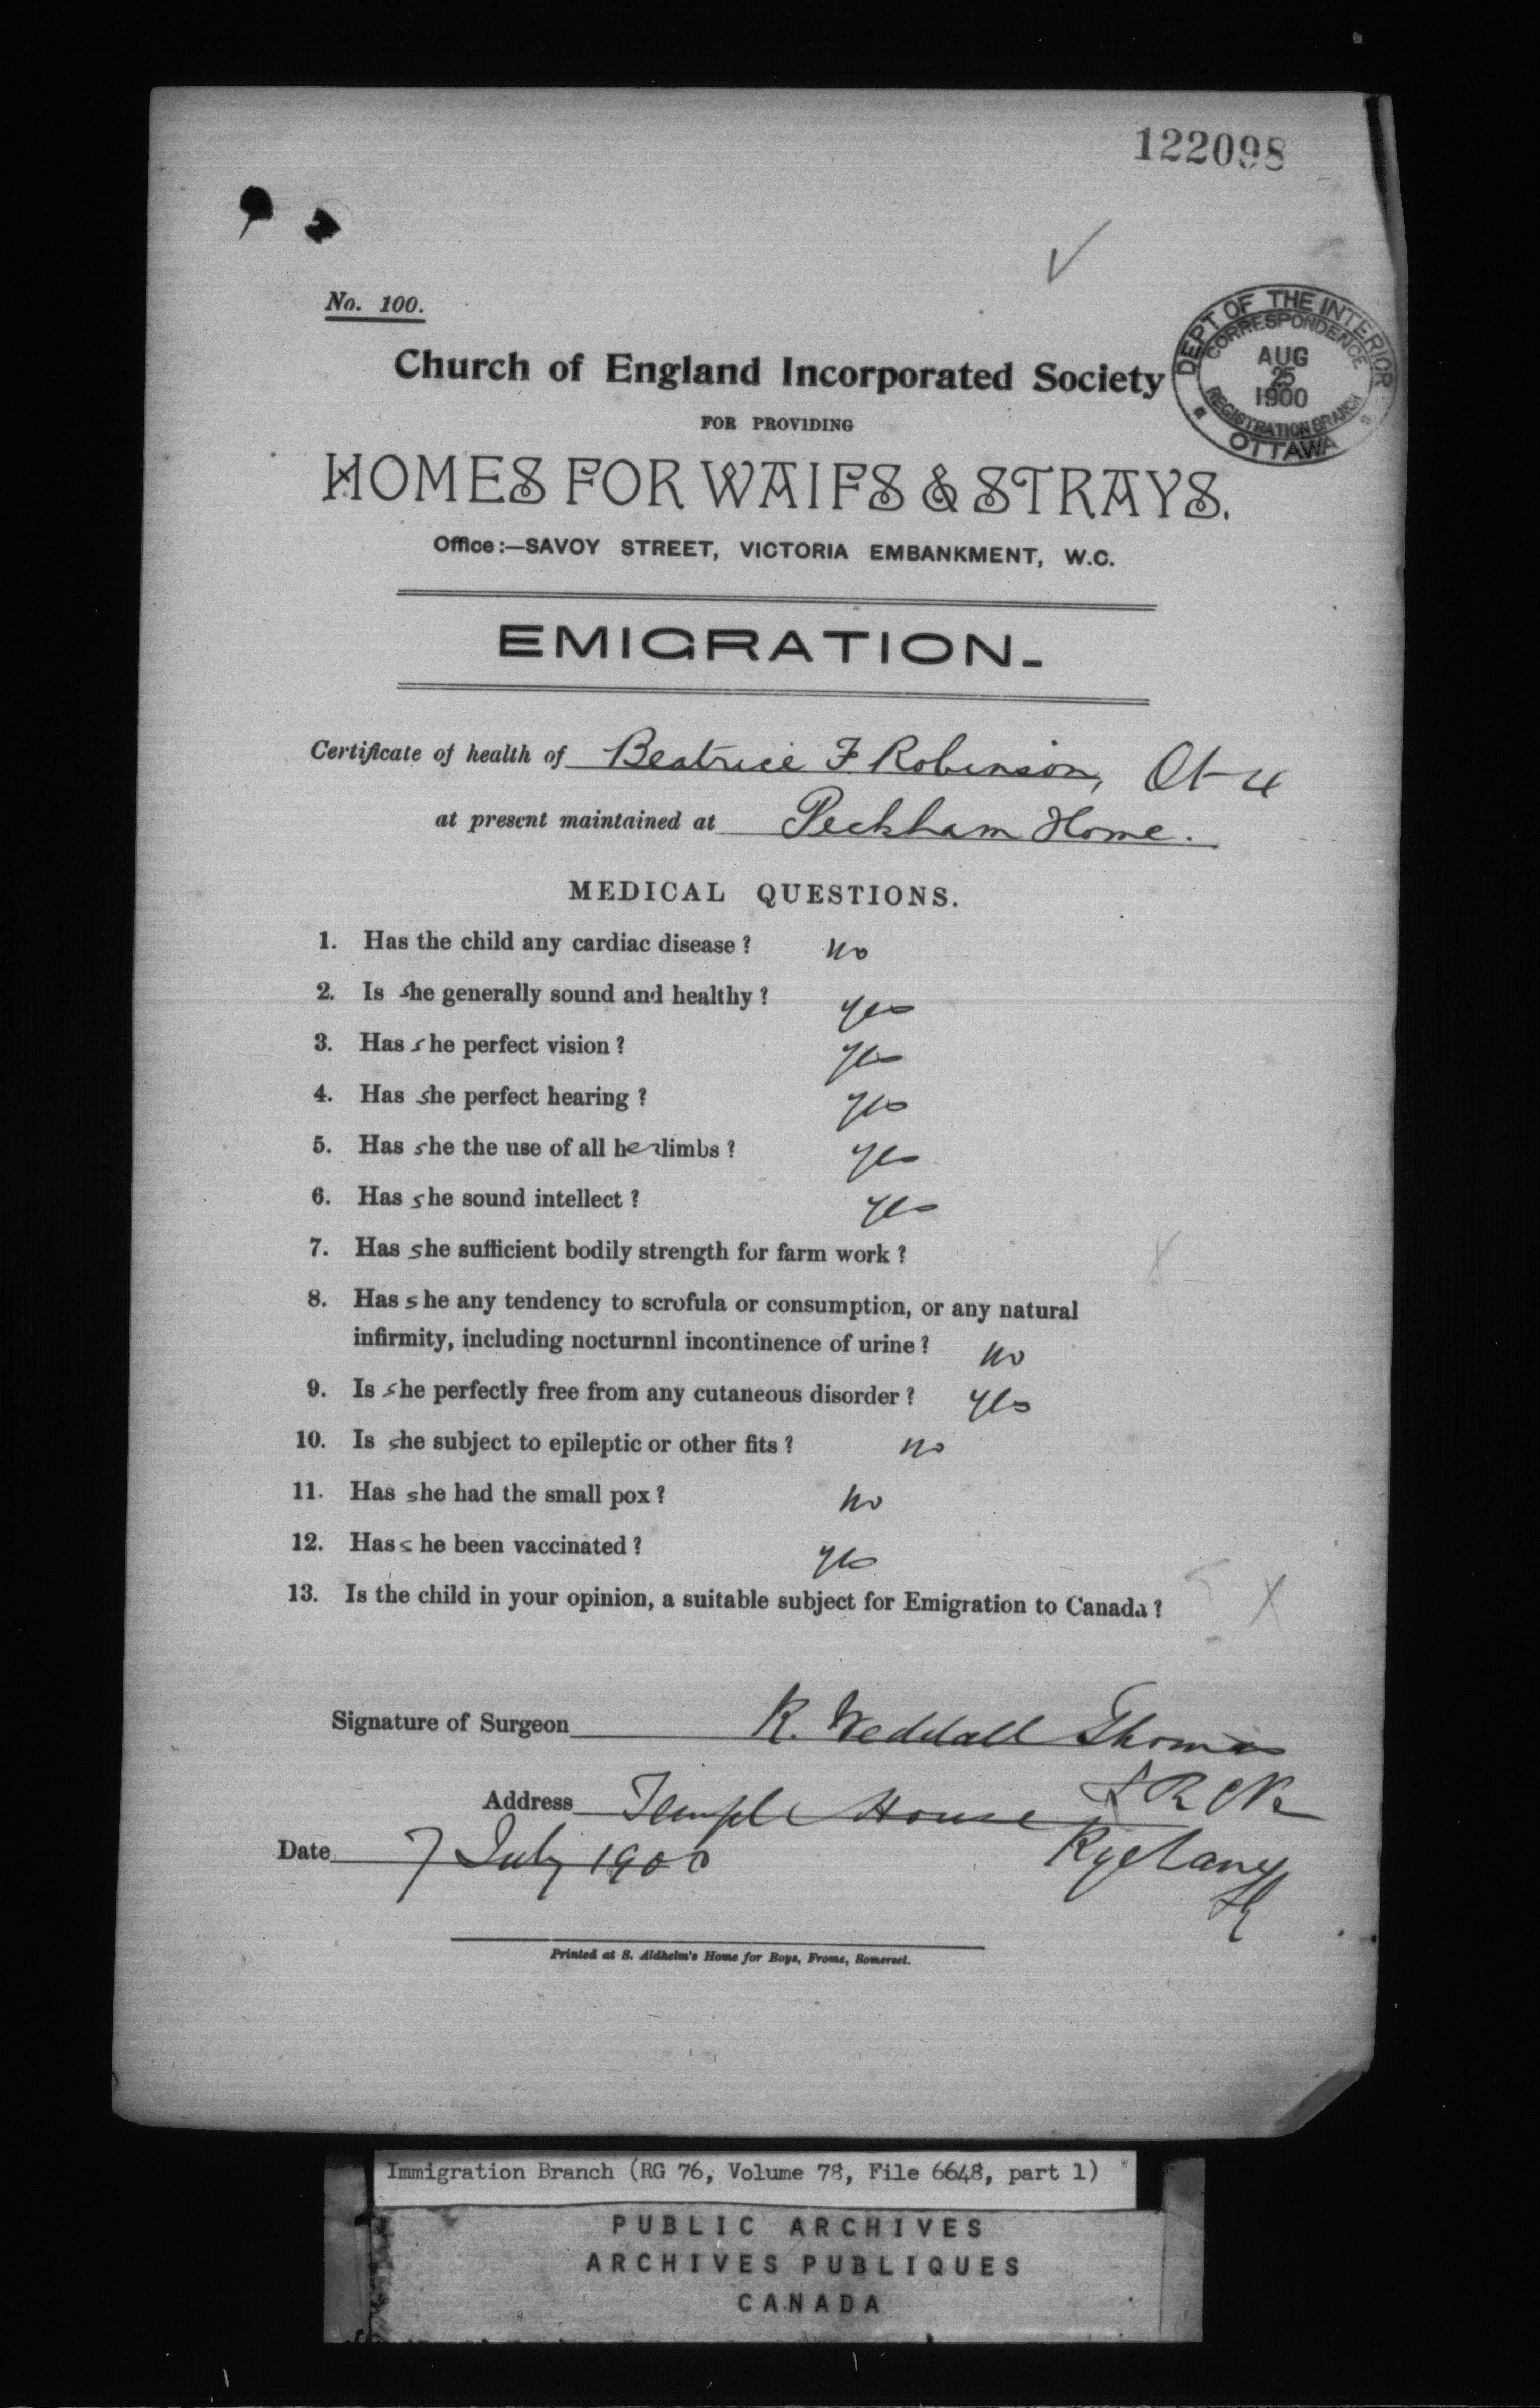 122098
No. 100.
DEPT OF THE INTERIOR
CORRESPONDENCE
AUG
25
1900
REGISTRATION BRANCH
OTTAWA
Church of England Incorporated Society
FOR PROVIDING
HOMES FOR WAIFS & STRAYS.
Office:—SAVOY STREET, VICTORIA EMBANKMENT, W.C.
EMIGRATION-
Certificate of health of Beatrice F. Robinson,
at present maintained at Peckham Home.
MEDICAL QUESTIONS.
1. Has the child any cardiac disease? no
2. Is she generally sound and healthy? yes
3. Has she perfect vision? yes
4. Has she perfect hearing? yes
5. Has she the use of all her limbs? yes
6. Has she sound intellect? yes
7. Has she sufficient bodily strength for farm work?
8. Has she any tendency to scrofula or consumption, or any natural
infirmity, including nocturnnl incontinence of urine? no
9. Is she perfectly free from any cutaneous disorder? yes
10. Is she subject to epileptic or other fits? no
11. Has she had the small pox? no
12. Has she been vaccinated? yes
13. Is the child in your opinion, a suitable subject for Emigration to Canada? X
Signature of Surgeon R. Weddall Thomas
Address Temple House
Date 7 July 1900 Rye Lane
Printed at S. Aldhelm's Home for Boys, Frome, Somerset.
Immigration Branch (RG 76, Volume 78, File 6648, part 1)
PUBLIC ARCHIVES
ARCHIVES PUBLIQUES
CANADA